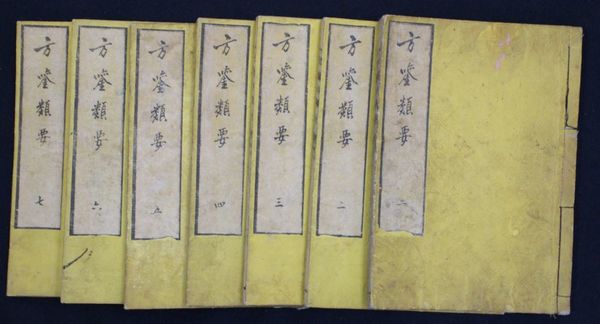 方鑒類要 一
方鑒類要 二
方鑒類要 三
方鑒類要 四
方鑒類要 五
方鑒類要 六
方鑒類要 七